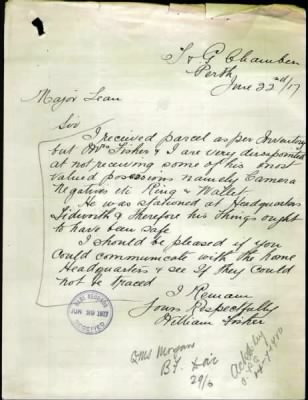 T & G Chambers
Perth
June 22nd/17
Major Lean
Sir
I received parcel as per Inventory
but Mrs Fisher & I are very dissapointed
at not receiving some of his most
valued possessions namely Camera
Negatives etc Ring & Wallet.
He was stationed at Headquarters
Tidworth & therefore his things ought
to have been safe
I should be pleased if you
could communicate with the home
Headquarters & see if they could
not be traced
I Remain
Yours Respectfully
William Fisher
BASE RECORDS
JUN 29 1917
RECEIVED
QMS Morgan
29/6